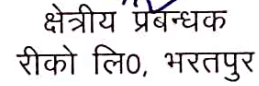 क्षेत्रीय प्रबन्धक
रीको लि0, भरतपुर